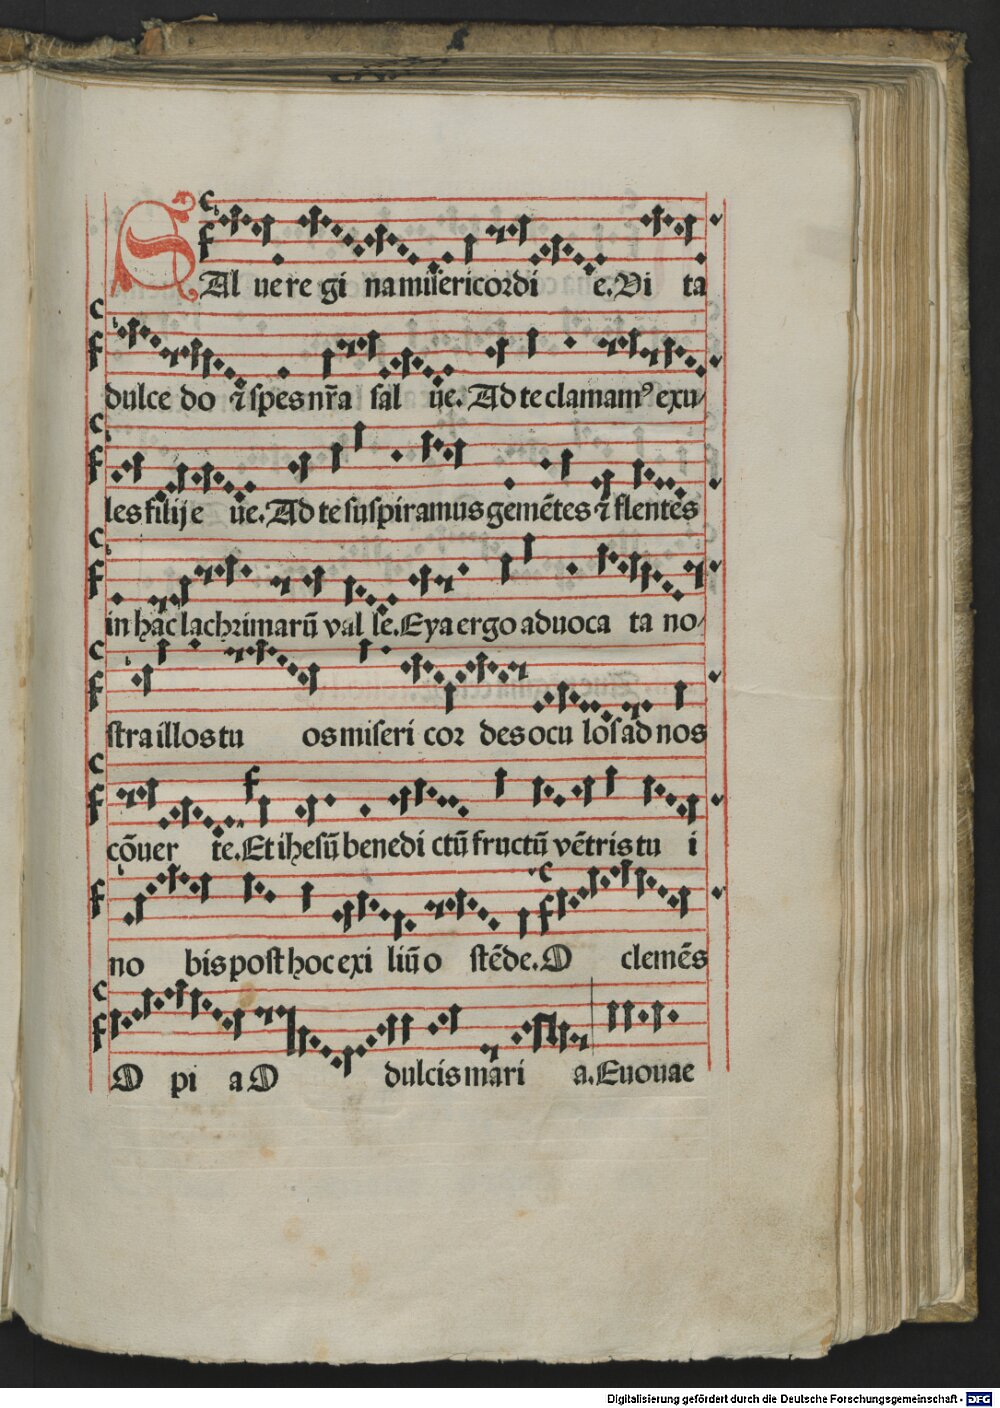 SAl ue re gi na misericordi e. Vi ta
dulce do ⁊ spes nr̄a sal ūe. Ad te clamamꝰ exu/
les filij e ūe. Ad te suspiramus gemētes ⁊ flentēs
in hac lachrimarū val le. Eya ergo aduoca ta no/
stra illos tu os miseri cor des ocu los ad nos
cōuer te. Et ihesū benedi ctū fructū vētris tu i
no bis post hoc exi liū o stēde. O clemēs
O pi a O dulcis mari a. Euouae
Digitalisierung gefördert durch die Deutsche Forschungsgemeinschaft - DFG